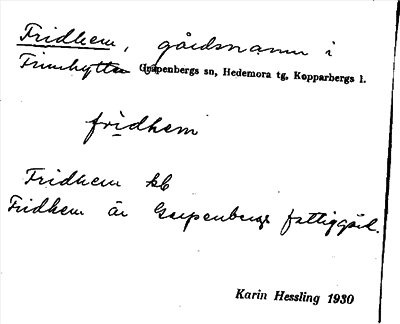 Fridhem, gårdsnamn i
Finnhyttan Garpenbergs sn, Hedemora tg, Kopparbergs l.
fridhem
Fridhem kb
Fridhem är Garpenbergs fattiggård.
Karin Hessling 1930